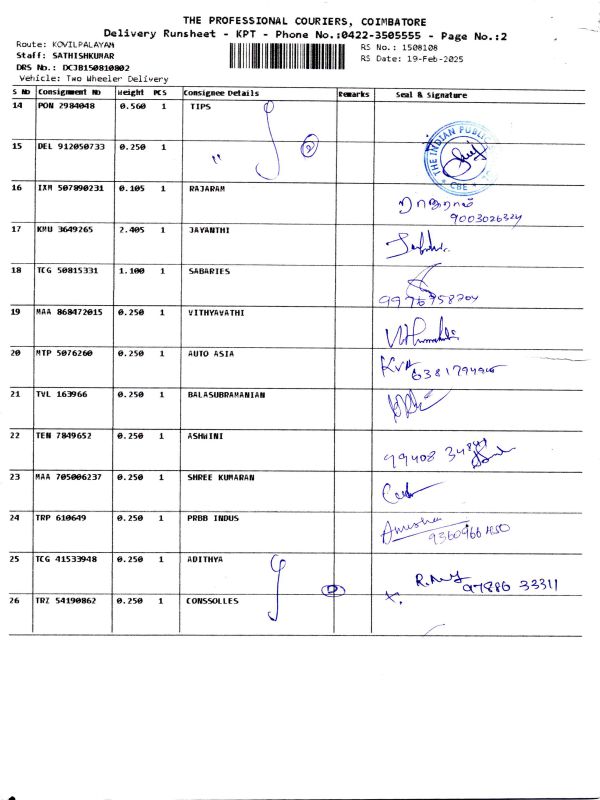 THE PROFESSIONAL COURIERS, COIMBATORE
Delivery Runsheet - KPT - Phone No.:0422-3505555 - Page No.:2
Route: KOVILPALAYAM RS No.: 1508108
Staff: SATHISHKUMAR RS Date: 19-Feb-2025
DRS No.: DCJB150810802
Vehicle: Two Wheeler Delivery
S No Consignment No Weight PCS Consignee Details Remarks Seal & Signature
14 PON 2984048 0.560 1 TIPS
15 DEL 912050733 0.250 1 " 2
THE INDIAN PUBLIC
CBE
16 IXM 507890231 0.105 1 RAJARAM
ராஜாராம்
9003026324
17 KMU 3649265 2.405 1 JAYANTHI
18 TCG 50815331 1.100 1 SABARIES
19 MAA 868472015 0.250 1 VITHYAVATHI
20 MTP 5076260 0.250 1 AUTO ASIA
21 TVL 163966 0.250 1 BALASUBRAMANIAN
22 TEN 7849652 0.250 1 ASHWINI
23 MAA 705006237 0.250 1 SHREE KUMARAN
24 TRP 610649 0.250 1 PRBB INDUS
Anusha
25 TCG 41533948 0.250 1 ADITHYA
97886 33311
26 TRZ 54190862 0.250 1 CONSSOLLES